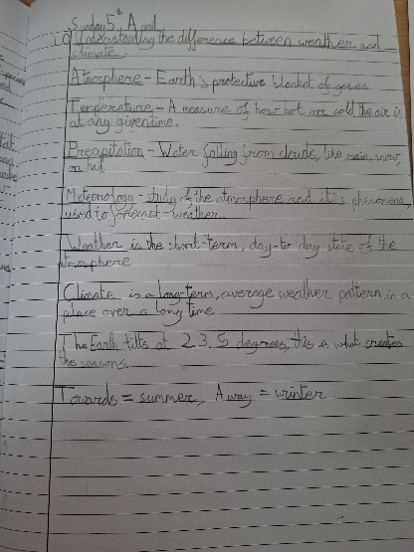 Sunday 5th April
LO Understanding the difference between weather and
climate
Atmosphere - Earth's protective blanket of gases
Temperature - A measure of how hot or cold the air is
at any given time.
Precipitation - Water falling from clouds, like rain, snow,
or hail
Meteorology - study of the atmosphere and it's phenomena,
used to forecast weather.
Weather is the short-term, day-to day state of the
atmosphere
Climate is a long-term, average weather pattern in a
place over a long time
The Earth tilts at 23.5 degrees, this is what creates
the seasons.
Towards = summer, Away = winter